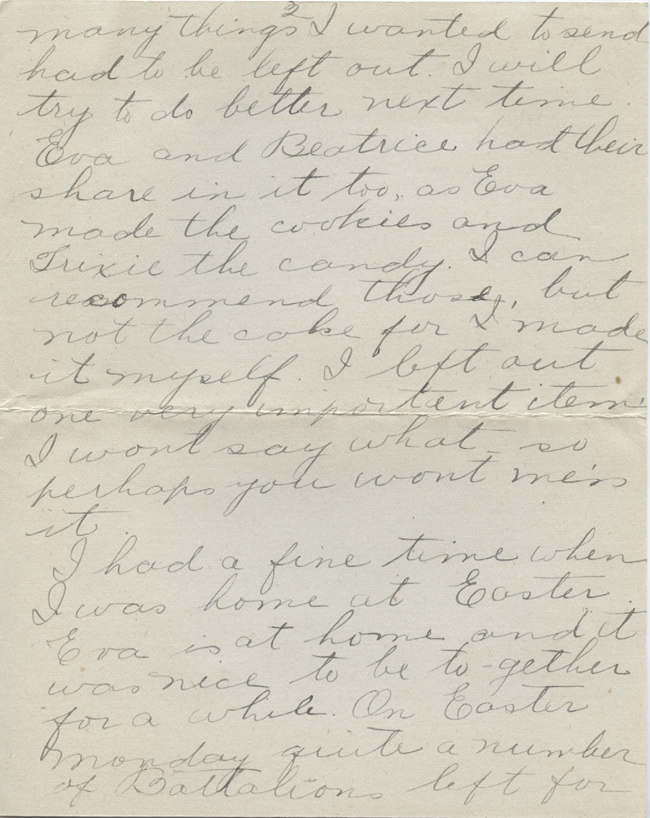 2
many things I wanted to send
had to be left out. I will
try to do better next time.
Eva and Beatrice had their
share in it too, as Eva
made the cookies and
Trixie the candy. I can
recommend those, but
not the cake for I made
it myself. I left out
one very important item.
I wont say what so
perhaps you wont miss
it.
I had a fine time when
I was home at Easter.
Eva is at home and it
was nice to be to-gether
for a while. On Easter
Monday quite a number
of Battalions left for